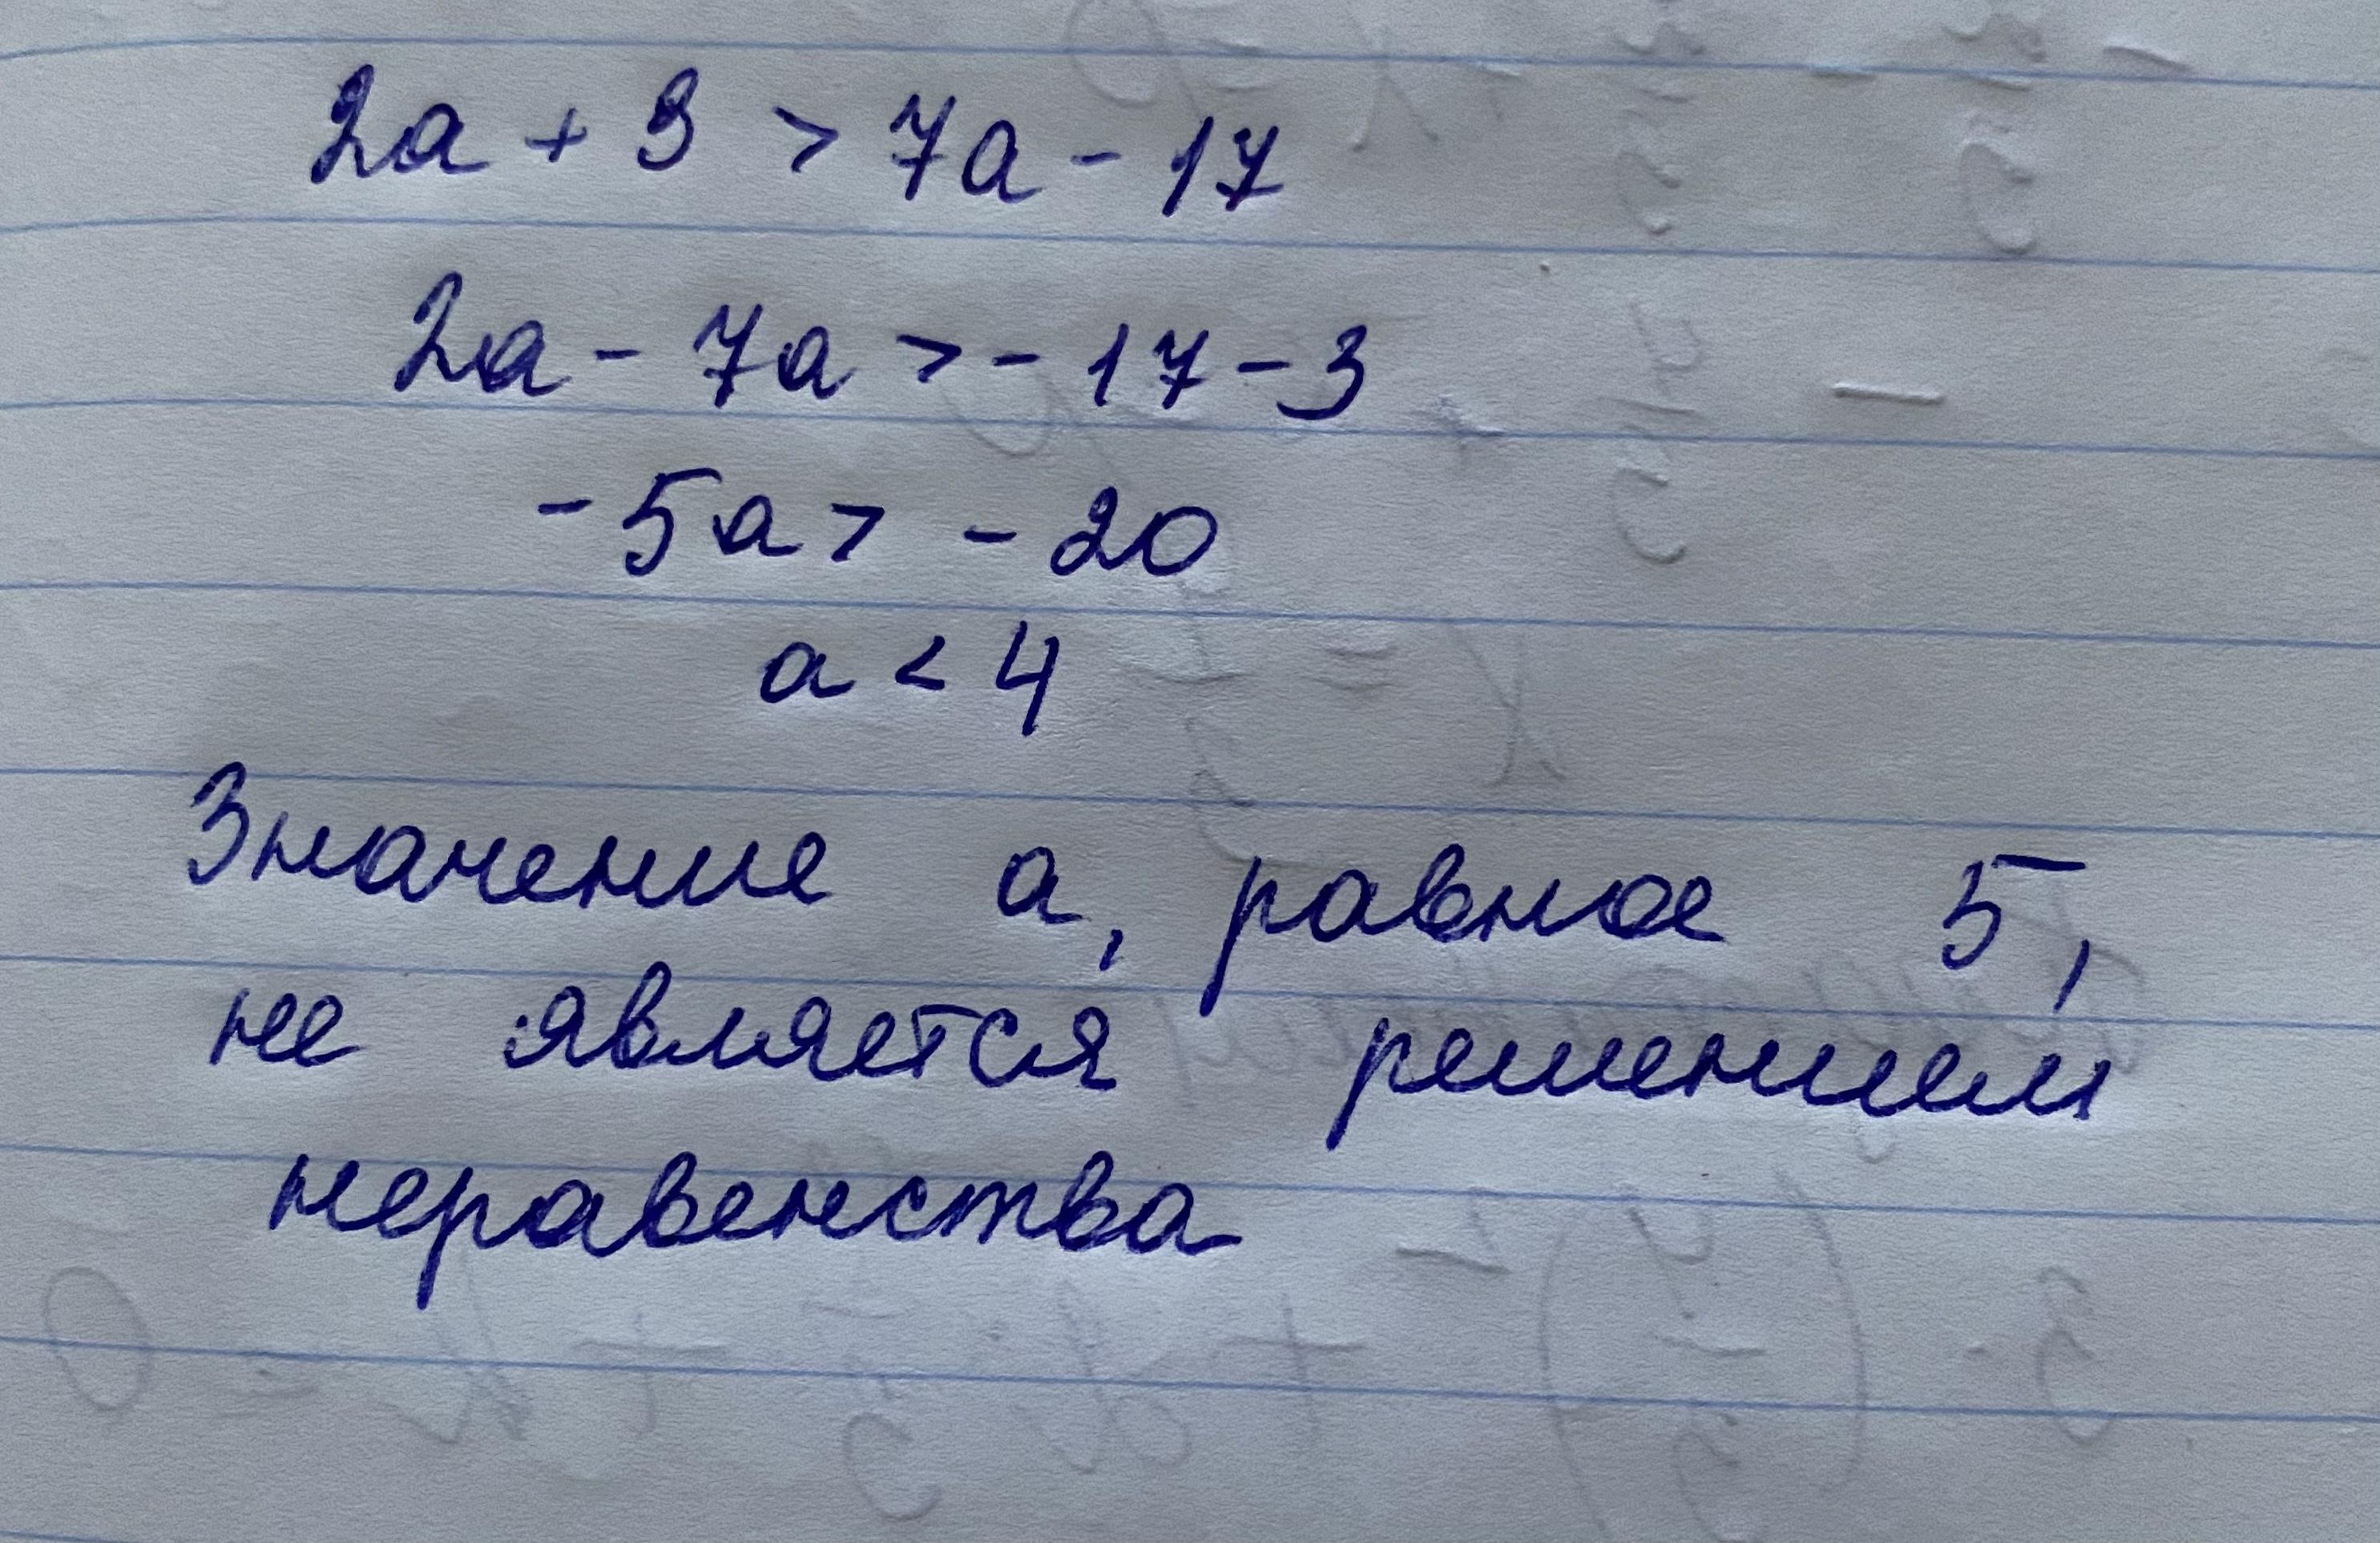 2a + 3 > 7a - 17
2a - 7a > - 17 - 3
- 5a > - 20
a < 4
Значение a, равное 5,
не является решением
неравенства